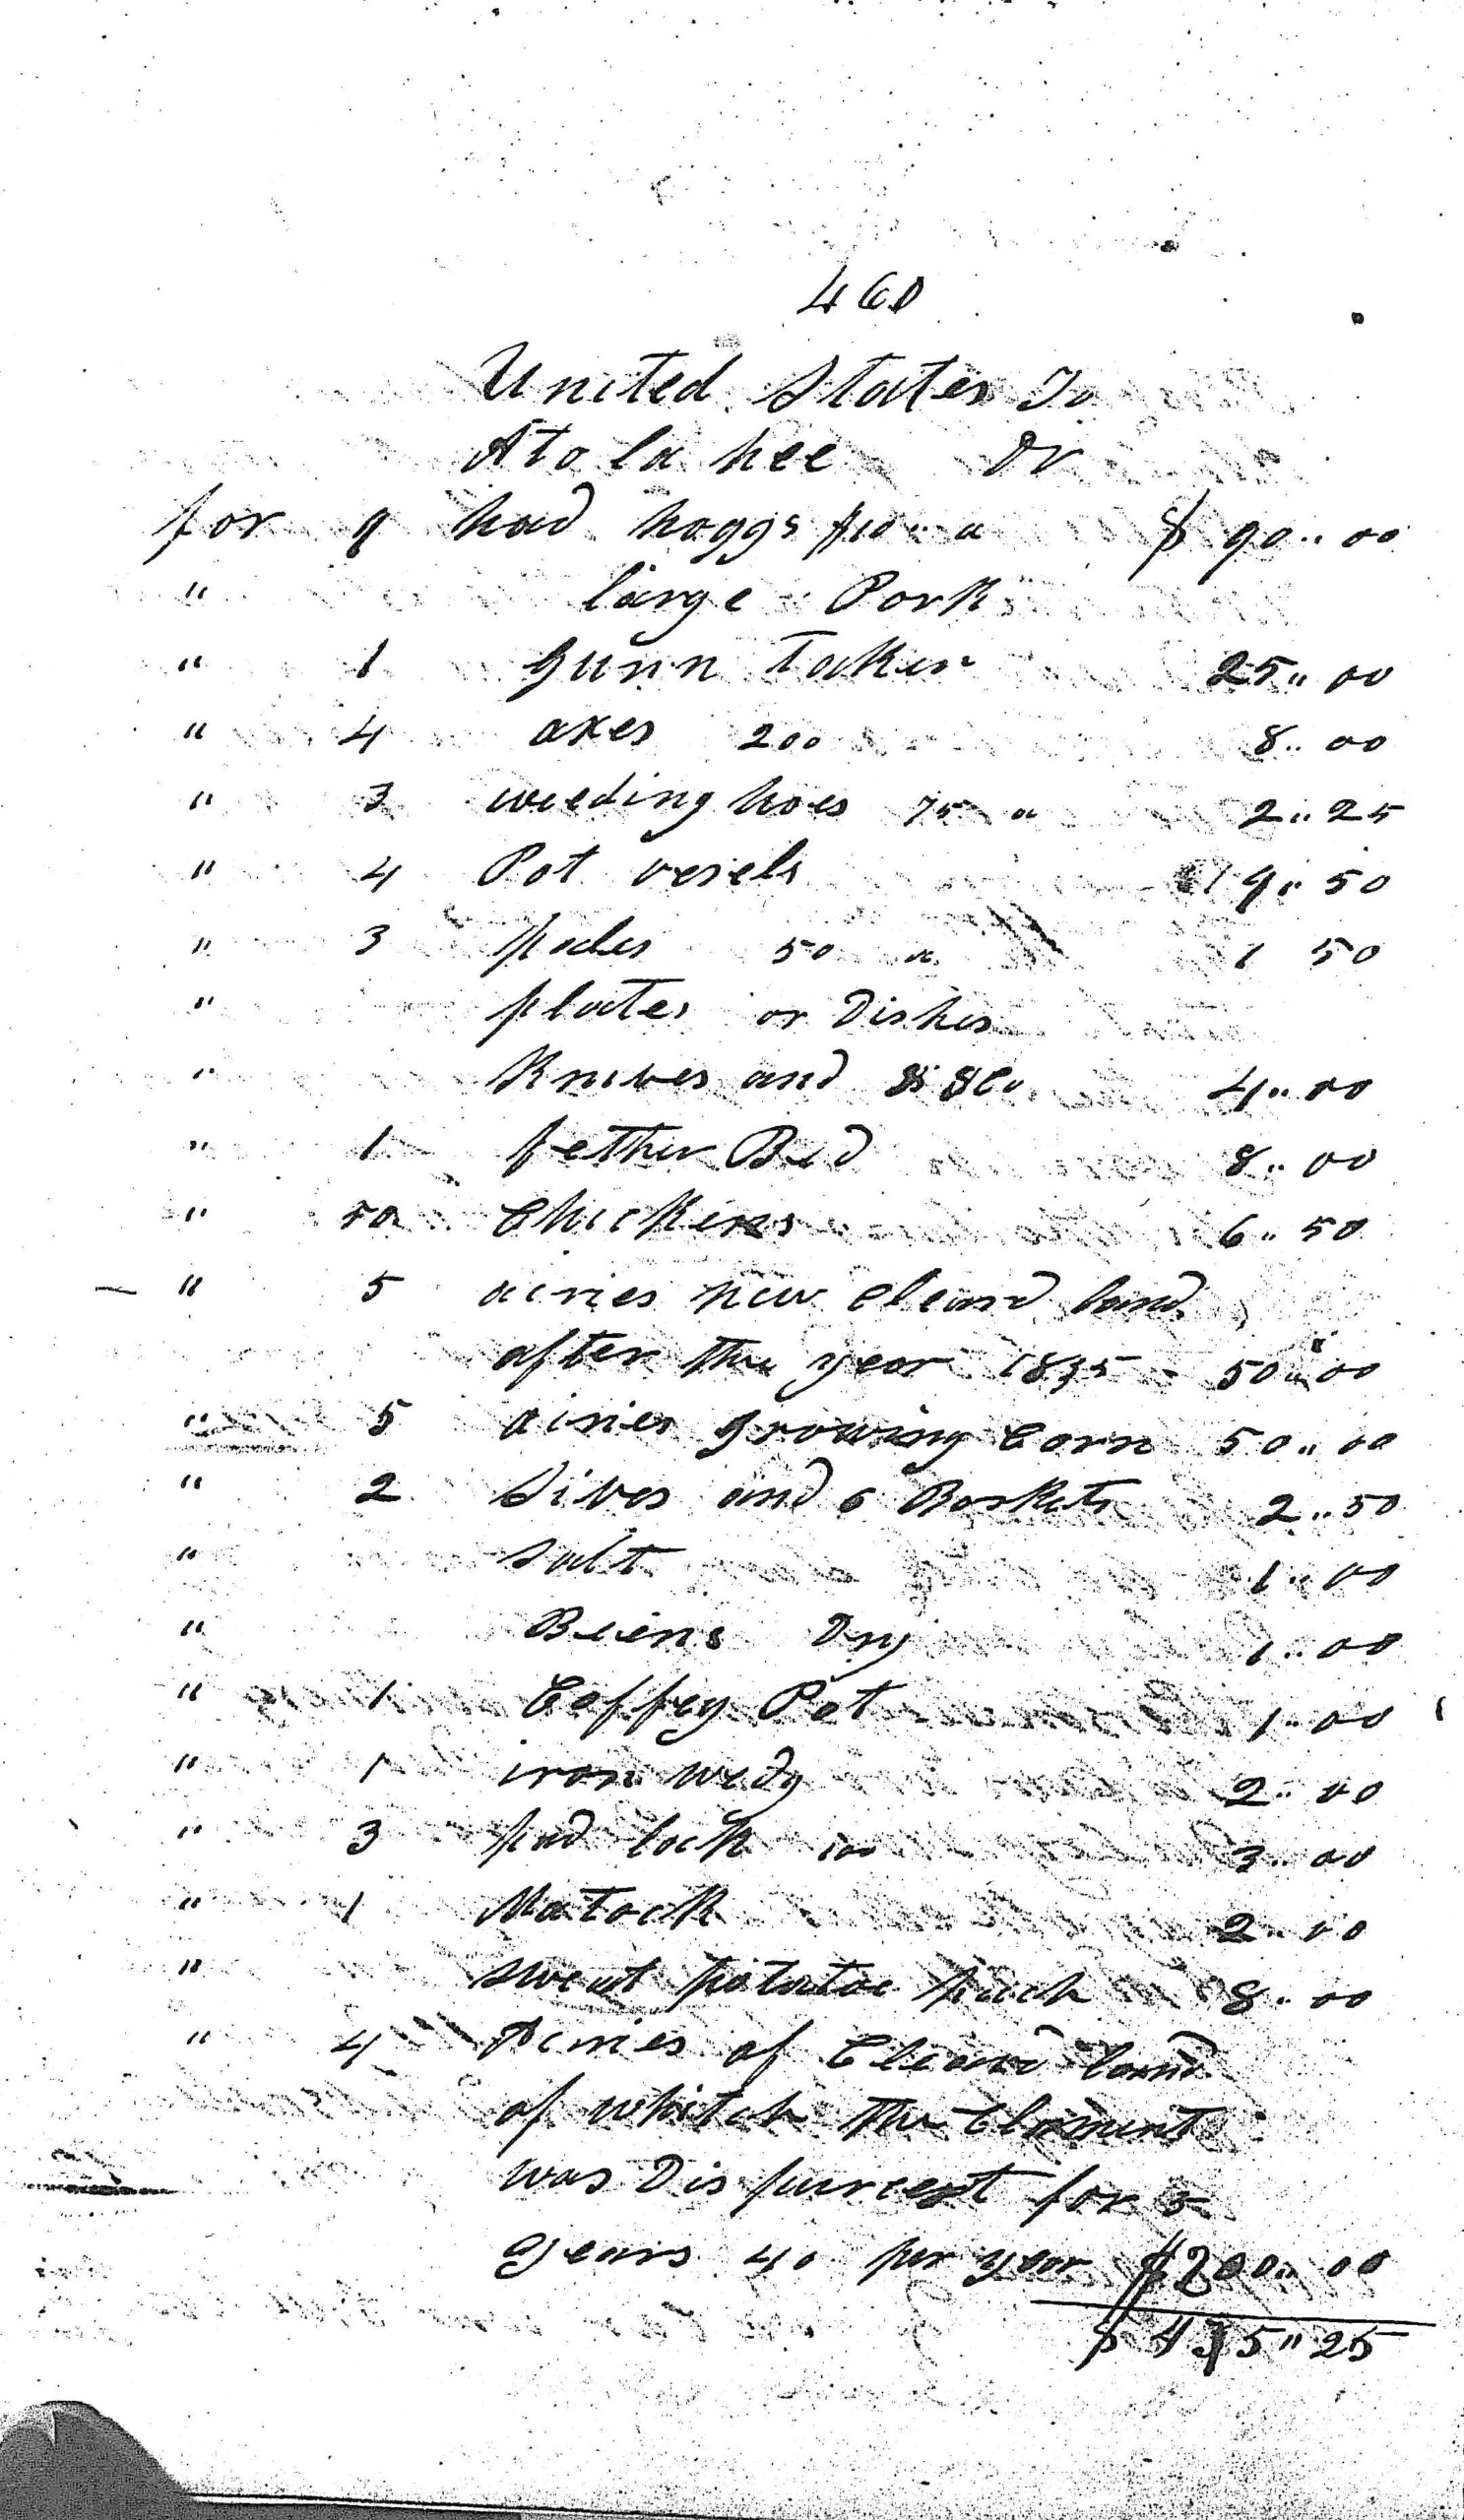 460
United States To
Ato la hee Dr
for 9 had hoggs $10 .. a $ 90 .. 00
" large Pork
" 1 gunn Taken 25 .. 00
" 4 axes 200 8 .. 00
" 3 weeding hoes 75 a 2 .. 25
" 4 Pot vesels 9 .. 50
" 3 50 a 1 50
" plates or Dishes
" Knives and 4 .. 00
" 1 fether Bed 8 .. 00
" Chickens 6 .. 50
" 5 acries new cleard land
after the year 1835 - 50 .. 00
" 5 acries growing Corn 50 .. 00
" 2 Sives and 6 Baskets 2 .. 50
" Salt 1 .. 00
" Beens Dry 1 .. 00
" 1 Coffey Pot 1 .. 00
" 1 iron wedg 2 .. 00
" 3 pad lock 100 3 .. 00
" 1 Matock 2 .. 00
" sweat potatoe pach 8 .. 00
" 4 Acries of Cleard land
of whitch the Clament
was Dis purcest for 5
years 40 per year $200 .. 00
$ 4 5 " 25